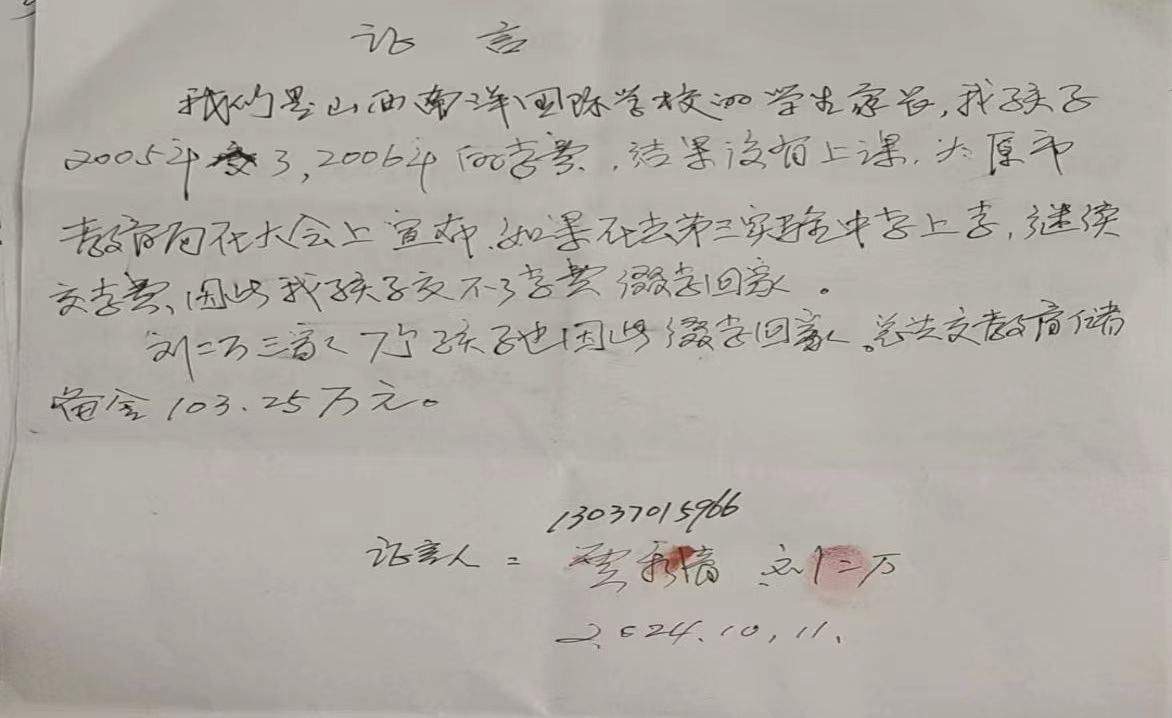 证 言
我们是山西南洋国际学校的学生家长,我孩子
2005年交了,2006年的学费,结果没有上课,太原市
教育局在大会上宣布,如果在去第三实验中学上学,继续
交学费,因此我孩子交不了学费缀学回家。
刘二万三家7个孩子也因此缀学回家。总共交教育储
备金103.25万元。
13037015966
证言人: 贾秀清 刘二万
2024.10,11.